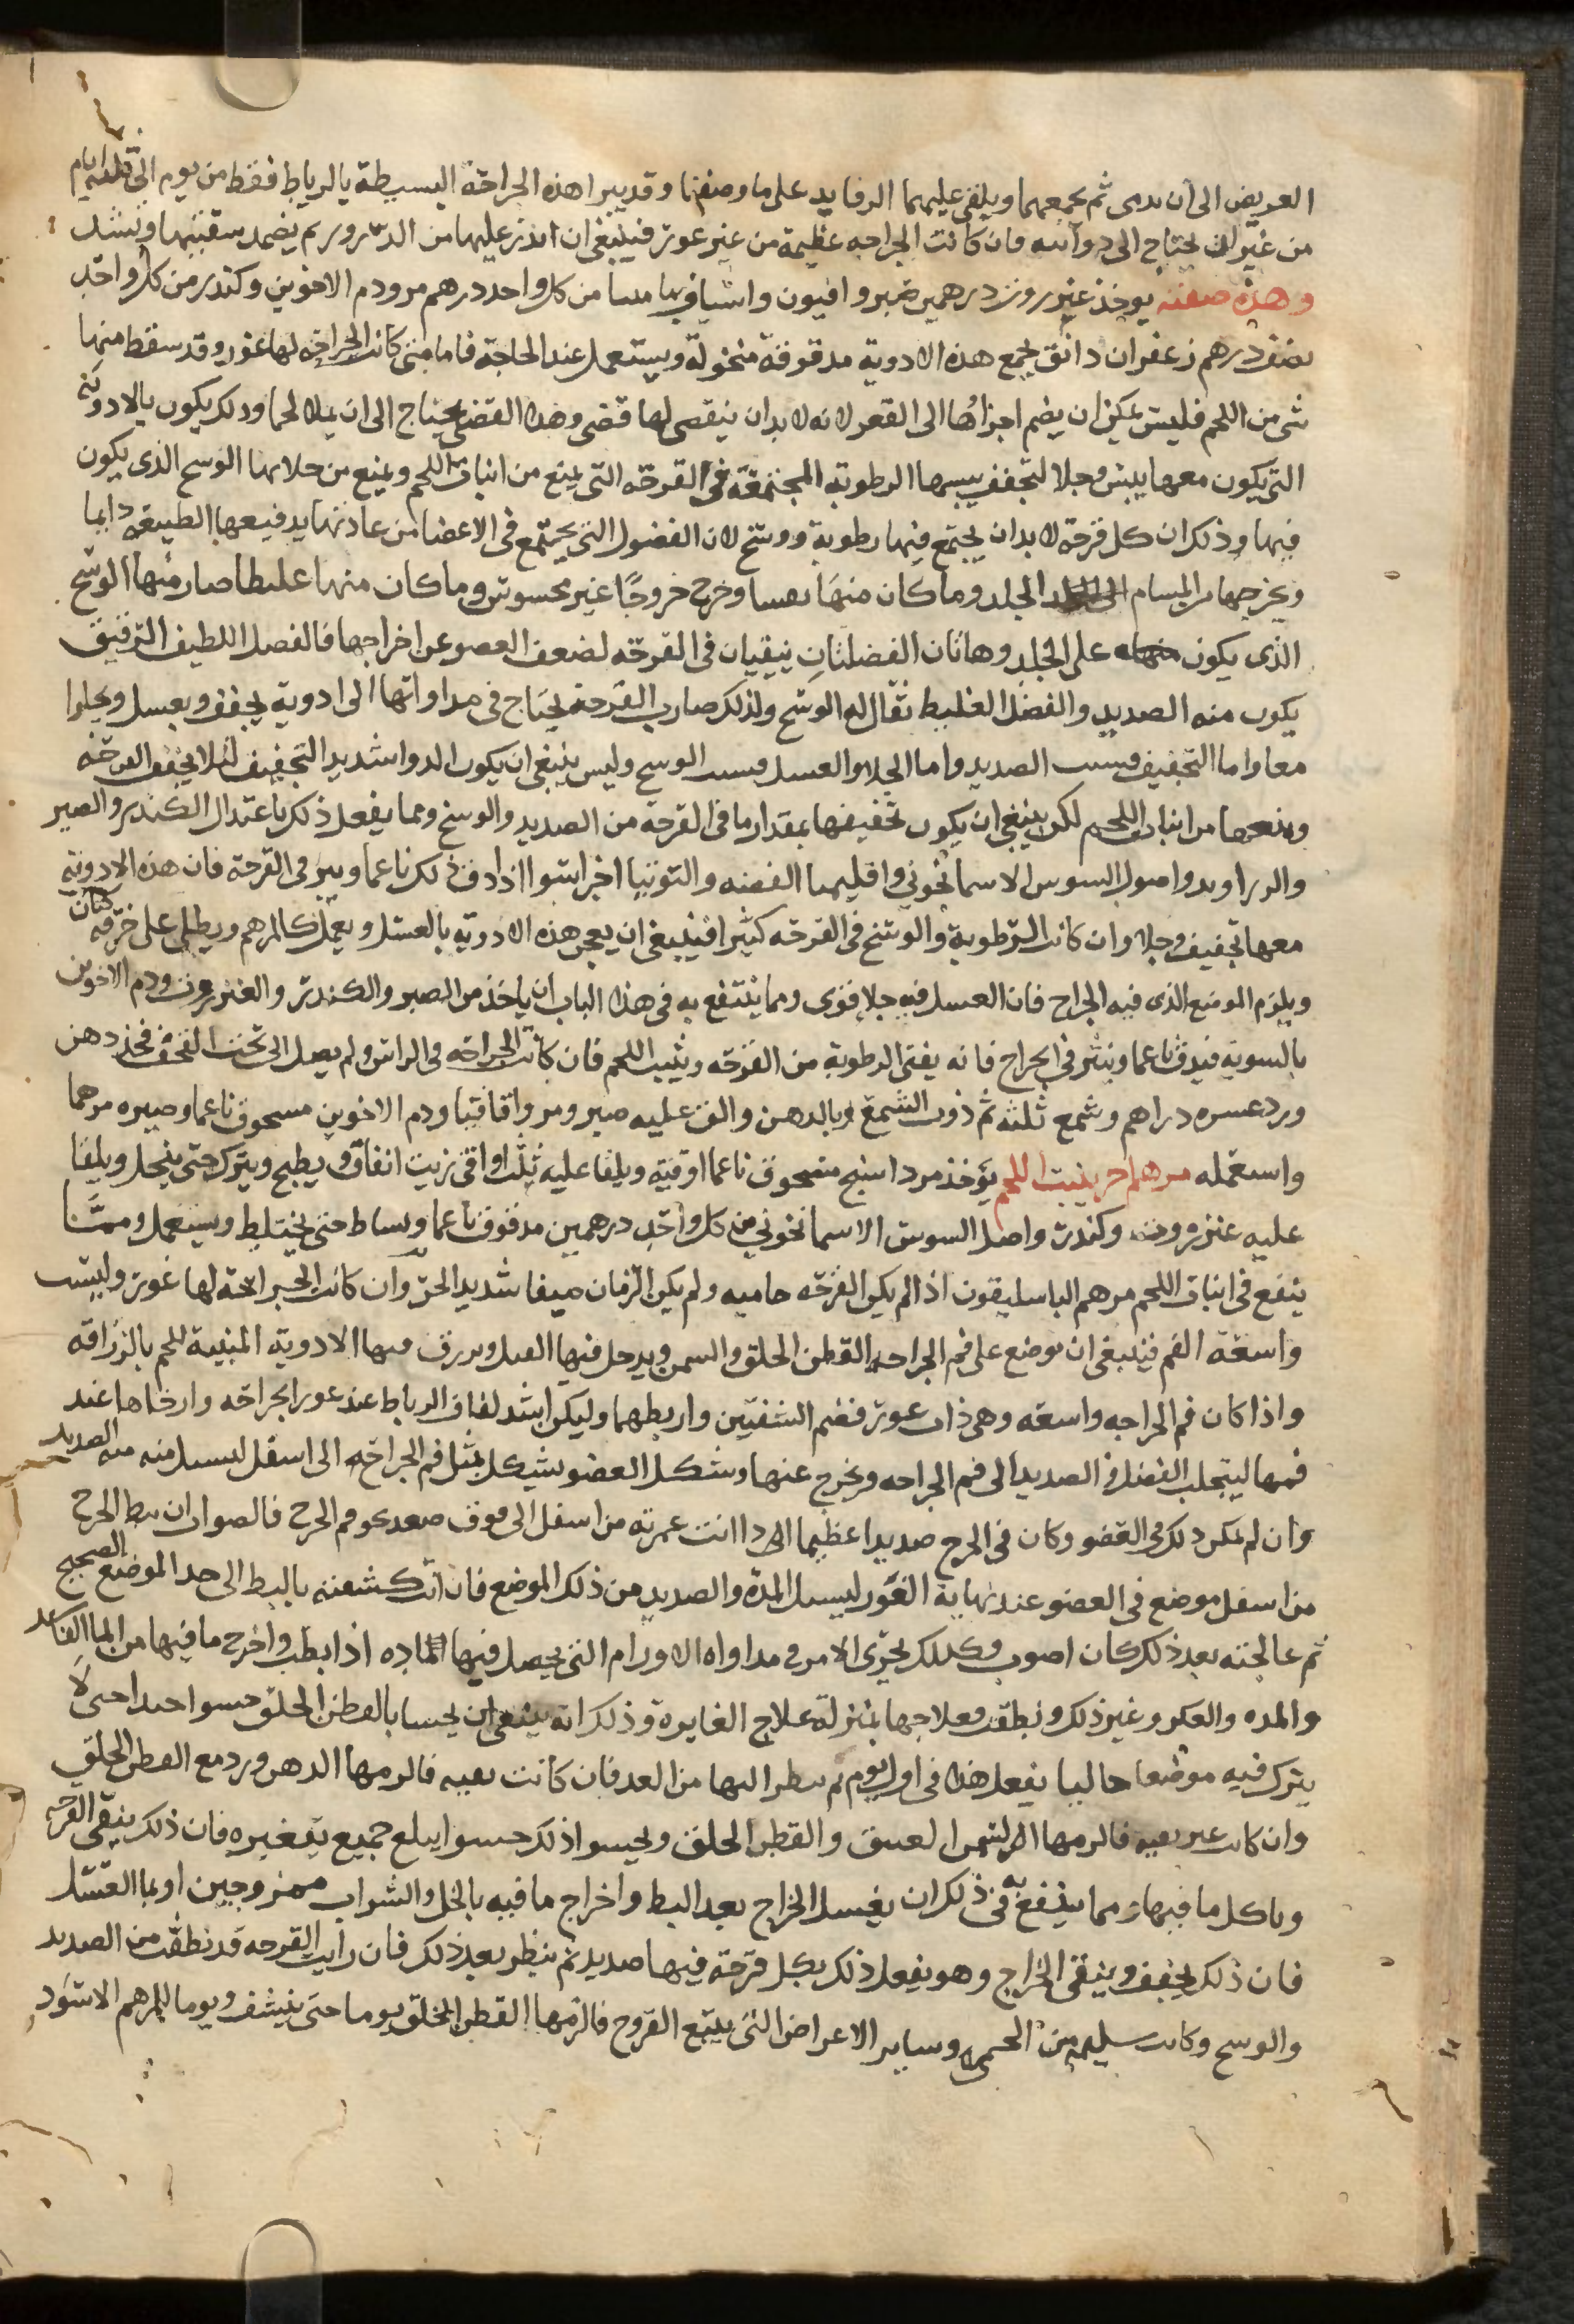 العريض الى ان يدمى ثم يجمعهما ويلقى عليهما الرفايد على ما وصفنا وقد يبرا هذه الجراحة البسيطة بالرباط فقط من يوم الى ثلثه ايام
من غير ان يحتاج الى دوا فان كانت الجراحه عظيمة من غير غور فينبغي ان تذر عليها من الذرور ثم يضمد وتشد
وهذه صفته يوخذ عنزروت درهمين صبر وافيون واشياف ماميسا من كل واحد درهم مر ودم الاخوين وكندر من كل واحد
نصف درهم زعفران دانق يجمع هذه الادوية مدقوقة منخولة ويستعمل عند الحاجة فاما متى كانت الجراحه لها غور وقد سقط منها
شى من اللحم فليس يمكن ان يضم اجزاؤها الى القعر لانه لا بد ان يبقى لها فضى وهذا الفضى يحتاج الى ان يملا لحما وذلك يكون بالادوية
التي يكون معها يبس وجلا لتجفف بيبسها الرطوبة المجتمعة في القرحه التي يمنع من انبات اللحم ويمنع من جلائها الوسخ الذى يكون
فيها وذلك ان كل قرحة لا بد ان يجتمع فيها رطوبة ووسخ لان الفضول التي يجتمع في الاعضا من عادتها يدفعها الطبيعه دايما
ويخرجها من المسام الى الجلد وما كان منها خرج خروجا غير محسوس وما كان منها غليظا صار منها الوسخ
الذى يكون على الجلد وهاتان الفضلتان يبقيان في القرحه لضعف العضو عن اخراجها فالفضل اللطيف الرقيق
يكون منه الصديد والفضل الغليظ يقال له الوسخ ولذلك صارت القرحة يحتاج في مداواتها الى ادوية يجفف ويغسل ويجلوا
معا واما التجفيف فبسبب الصديد واما الجلا والغسل فبسبب الوسخ وليس ينبغي ان يكون الدوا شديد التجفيف لئلا يجفف القرحه
ويمنعها من انبات اللحم لكن ينبغي ان يكون تجفيفها بمقدار ما في القرحة من الصديد والوسخ ومما يفعل ذلك باعتدال الكندر والصبر
والزراوند واصول السوسن الاسمانجوني واقليميا الفضه والتوتيا اجزا سوا اذا دق ذلك ناعما ونثر في القرحة فان هذه الادوية
معها تجفيف وجلا وان كانت الرطوبة والوسخ في القرحه كثيرا فينبغي ان يعجن هذه الادوية بالعسل ويعمل كالمرهم ويطلى على خرقه كتان
ويلزم الموضع الذى فيه الجراح فان العسل فيه جلا قوى ومما ينتفع به في هذا الباب ان ياخذ من الصبر والكندر والعنزروت ودم الاخوين
بالسوية فيدق ناعما وينثر في الجراح فانه يفنى الرطوبة من القرحه وينبت اللحم فان كانت الجراحه في الراس ولم يصل الى تحت القحف فخذ دهن
ورد عسره دراهم وشمع ثلثه ثم ذوب الشمع بالدهن والق عليه صبر ومر واقاقيا ودم الاخوين مسحوق ناعما وصيره مرهما
واستعمله مرهم اخر ينبت اللحم يؤخذ مرداسنج مسحوق ناعما اوقية ويلقا عليه ثلث اواقى زيت انفاق ويطبخ ويترك حتى ينحل ويلقا
عليه عنزروت وكندر واصل السوسن الاسمانجوني من كل واحد درهمين مدقوق ناعما ويساط حتى يختلط ويستعمل ومما
ينفع في انبات اللحم مرهم الباسليقون اذا لم يكن القرحه حاميه ولم يكن الزمان صيفا شديد الحر وان كانت الجراحة لها غور وليست
واسعة الفم فينبغي ان يوضع على فم الجراحه القطن الخلق والسمن ويدخل فيها الفتل ويزرق فيها الادوية المنبتة للحم بالزراقه
واذا كان فم الجراحه واسعه وهي ذات غور فضم الشفتين واربطهما وليكن ابتدا لفاف الرباط عند غور الجراحه وارخاها عند
فمها ليتجلب الفضل والصديد الى فم الجراحه ويخرج عنها وشكل العضو بشكل يمثل فم الجراحه الى اسفل ليسيل منه الصديد
وان لم يمكن ذلك في العضو وكان في الجرح صديدا عظيما اذا انت غمزته من اسفل الى فوق صعد نحو فم الجرح فالصواب ان يبط الجرح
من اسفل موضع في العضو عند نهاية الغور ليسيل المدة والصديد من ذلك الموضع فان انت كشفته بالبط الى حد الموضع الصحيح
ثم عالجته بعد ذلك كان اصوب وكذلك يجرى الامر في مداواه الاورام التي يحصل فيها الماده اذا بطت واخرج ما فيها من الما الفاسد
والمده والعكر وغير ذلك ونظفت فعلاجها بمنزلة علاج الغايرة وذلك انه ينبغي ان يحسا بالقطن الخلق حسوا جيدا حتى لا
يترك فيه موضعا خاليا يفعل هذا في اول يوم ثم ينظر اليها من الغد فان كانت نقيه فالزمها الدهن ورد مع القطن الخلق
وان كانت غير نقيه فالزمها السمن العتيق والقطن الخلق ويحسوا ذلك حسوا يبلغ جميع تقعيره فان ذلك ينقى القرحه
وياكل ما فيها ومما ينتفع به في ذلك ان يغسل الخراج بعد البط واخراج ما فيه بالخل والشراب ممزوجين او بما العسل
فان ذلك يجفف وينقى الخراج وهو يفعل ذلك بكل قرحة فيها صديد ثم ينظر بعد ذلك فان رايت القرحه قد نظفت من الصديد
والوسخ وكانت سليمه من الحمى وساير الاعراض التي يتبع القروح فالزمها القطن الخلق يوما حتى ينشف ويوما المرهم الاسود